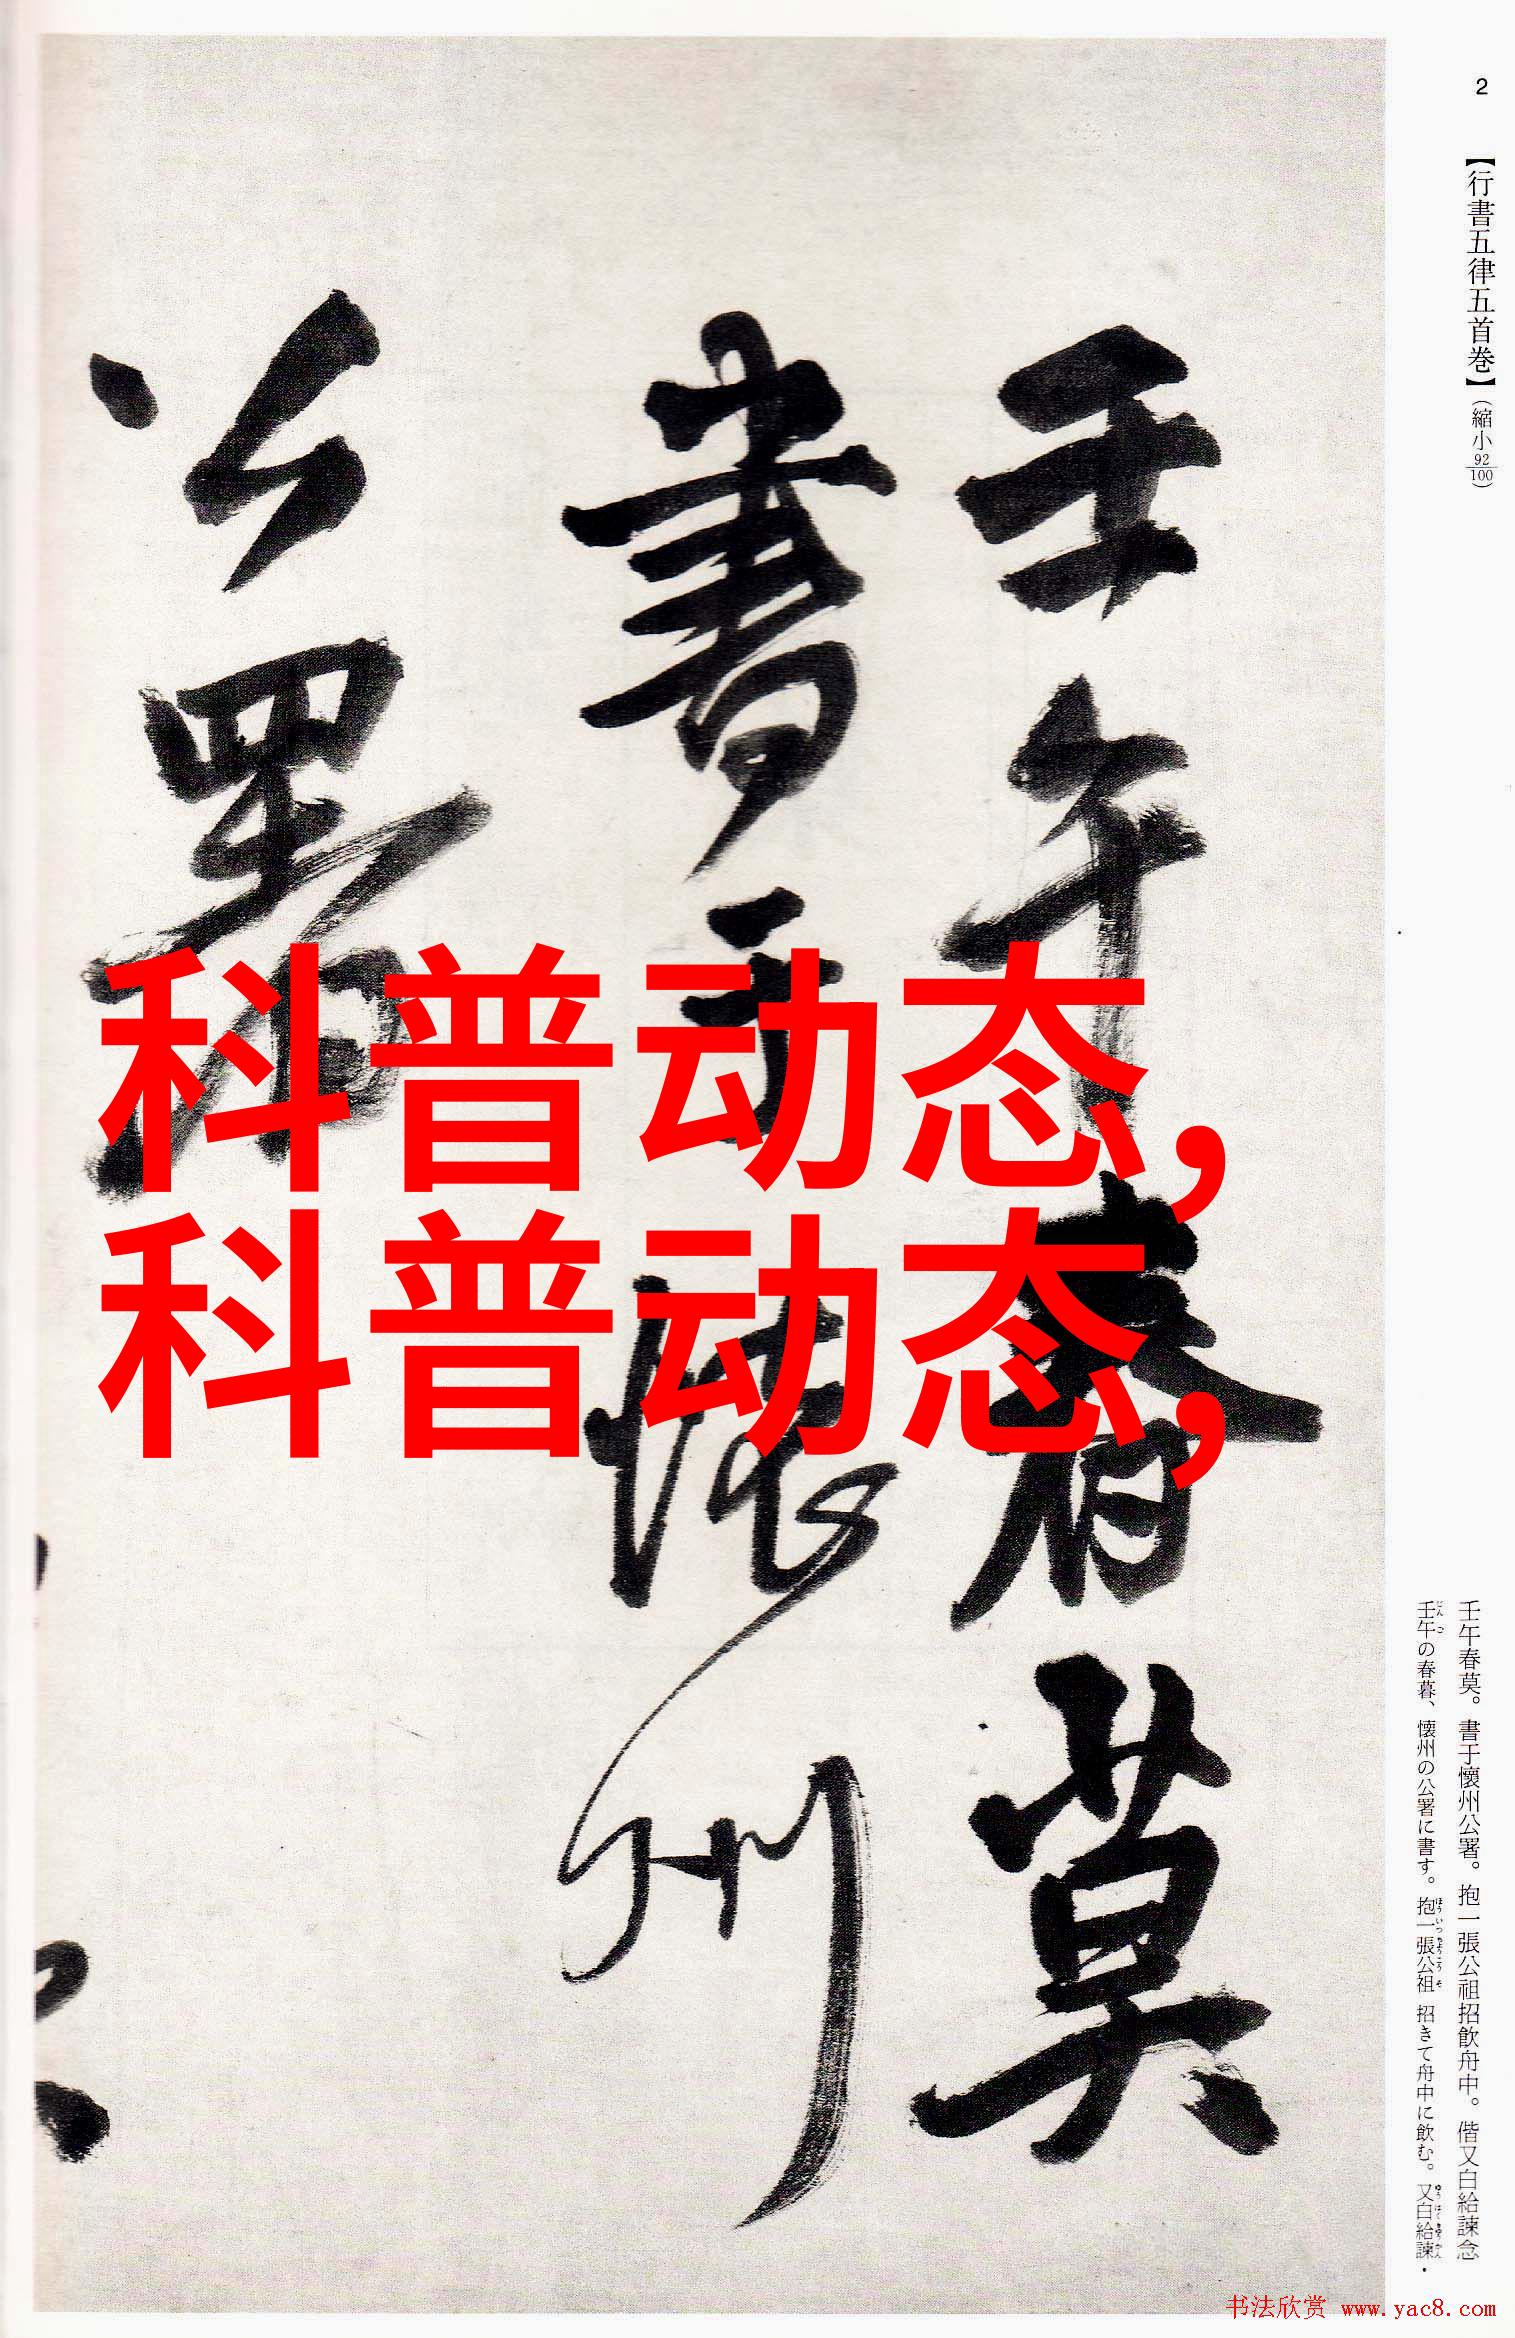 2
【行書五律五首巻】(縮小92/100)
壬午春莫
書于懷州
公署
科普动态,
科普动态,
壬午春莫。書于懷州公署。抱一張公祖招飲舟中。偕又白給諫念
壬午の春暮、懷州の公署に書す。抱一張公祖 招きて舟中に飲む。又白給諫・
书法欣赏 www.yac8.com